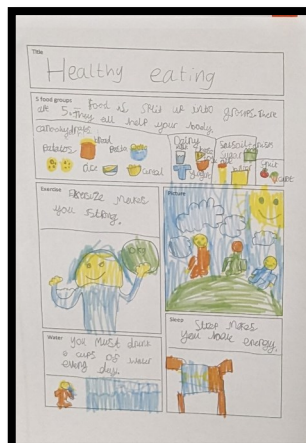 Title
Healthy eating
5 food groups
Food is split up into groups. There
are 5. They all help your body.
carbohydrate
bread
potatos
pasta
rice
cereal
Dairy
Fruit
Exercise
Exersize makes
you strong.
Picture
Water
You must drink
6 cups of water
every day.
Sleep
Sleep makes
you have energy.